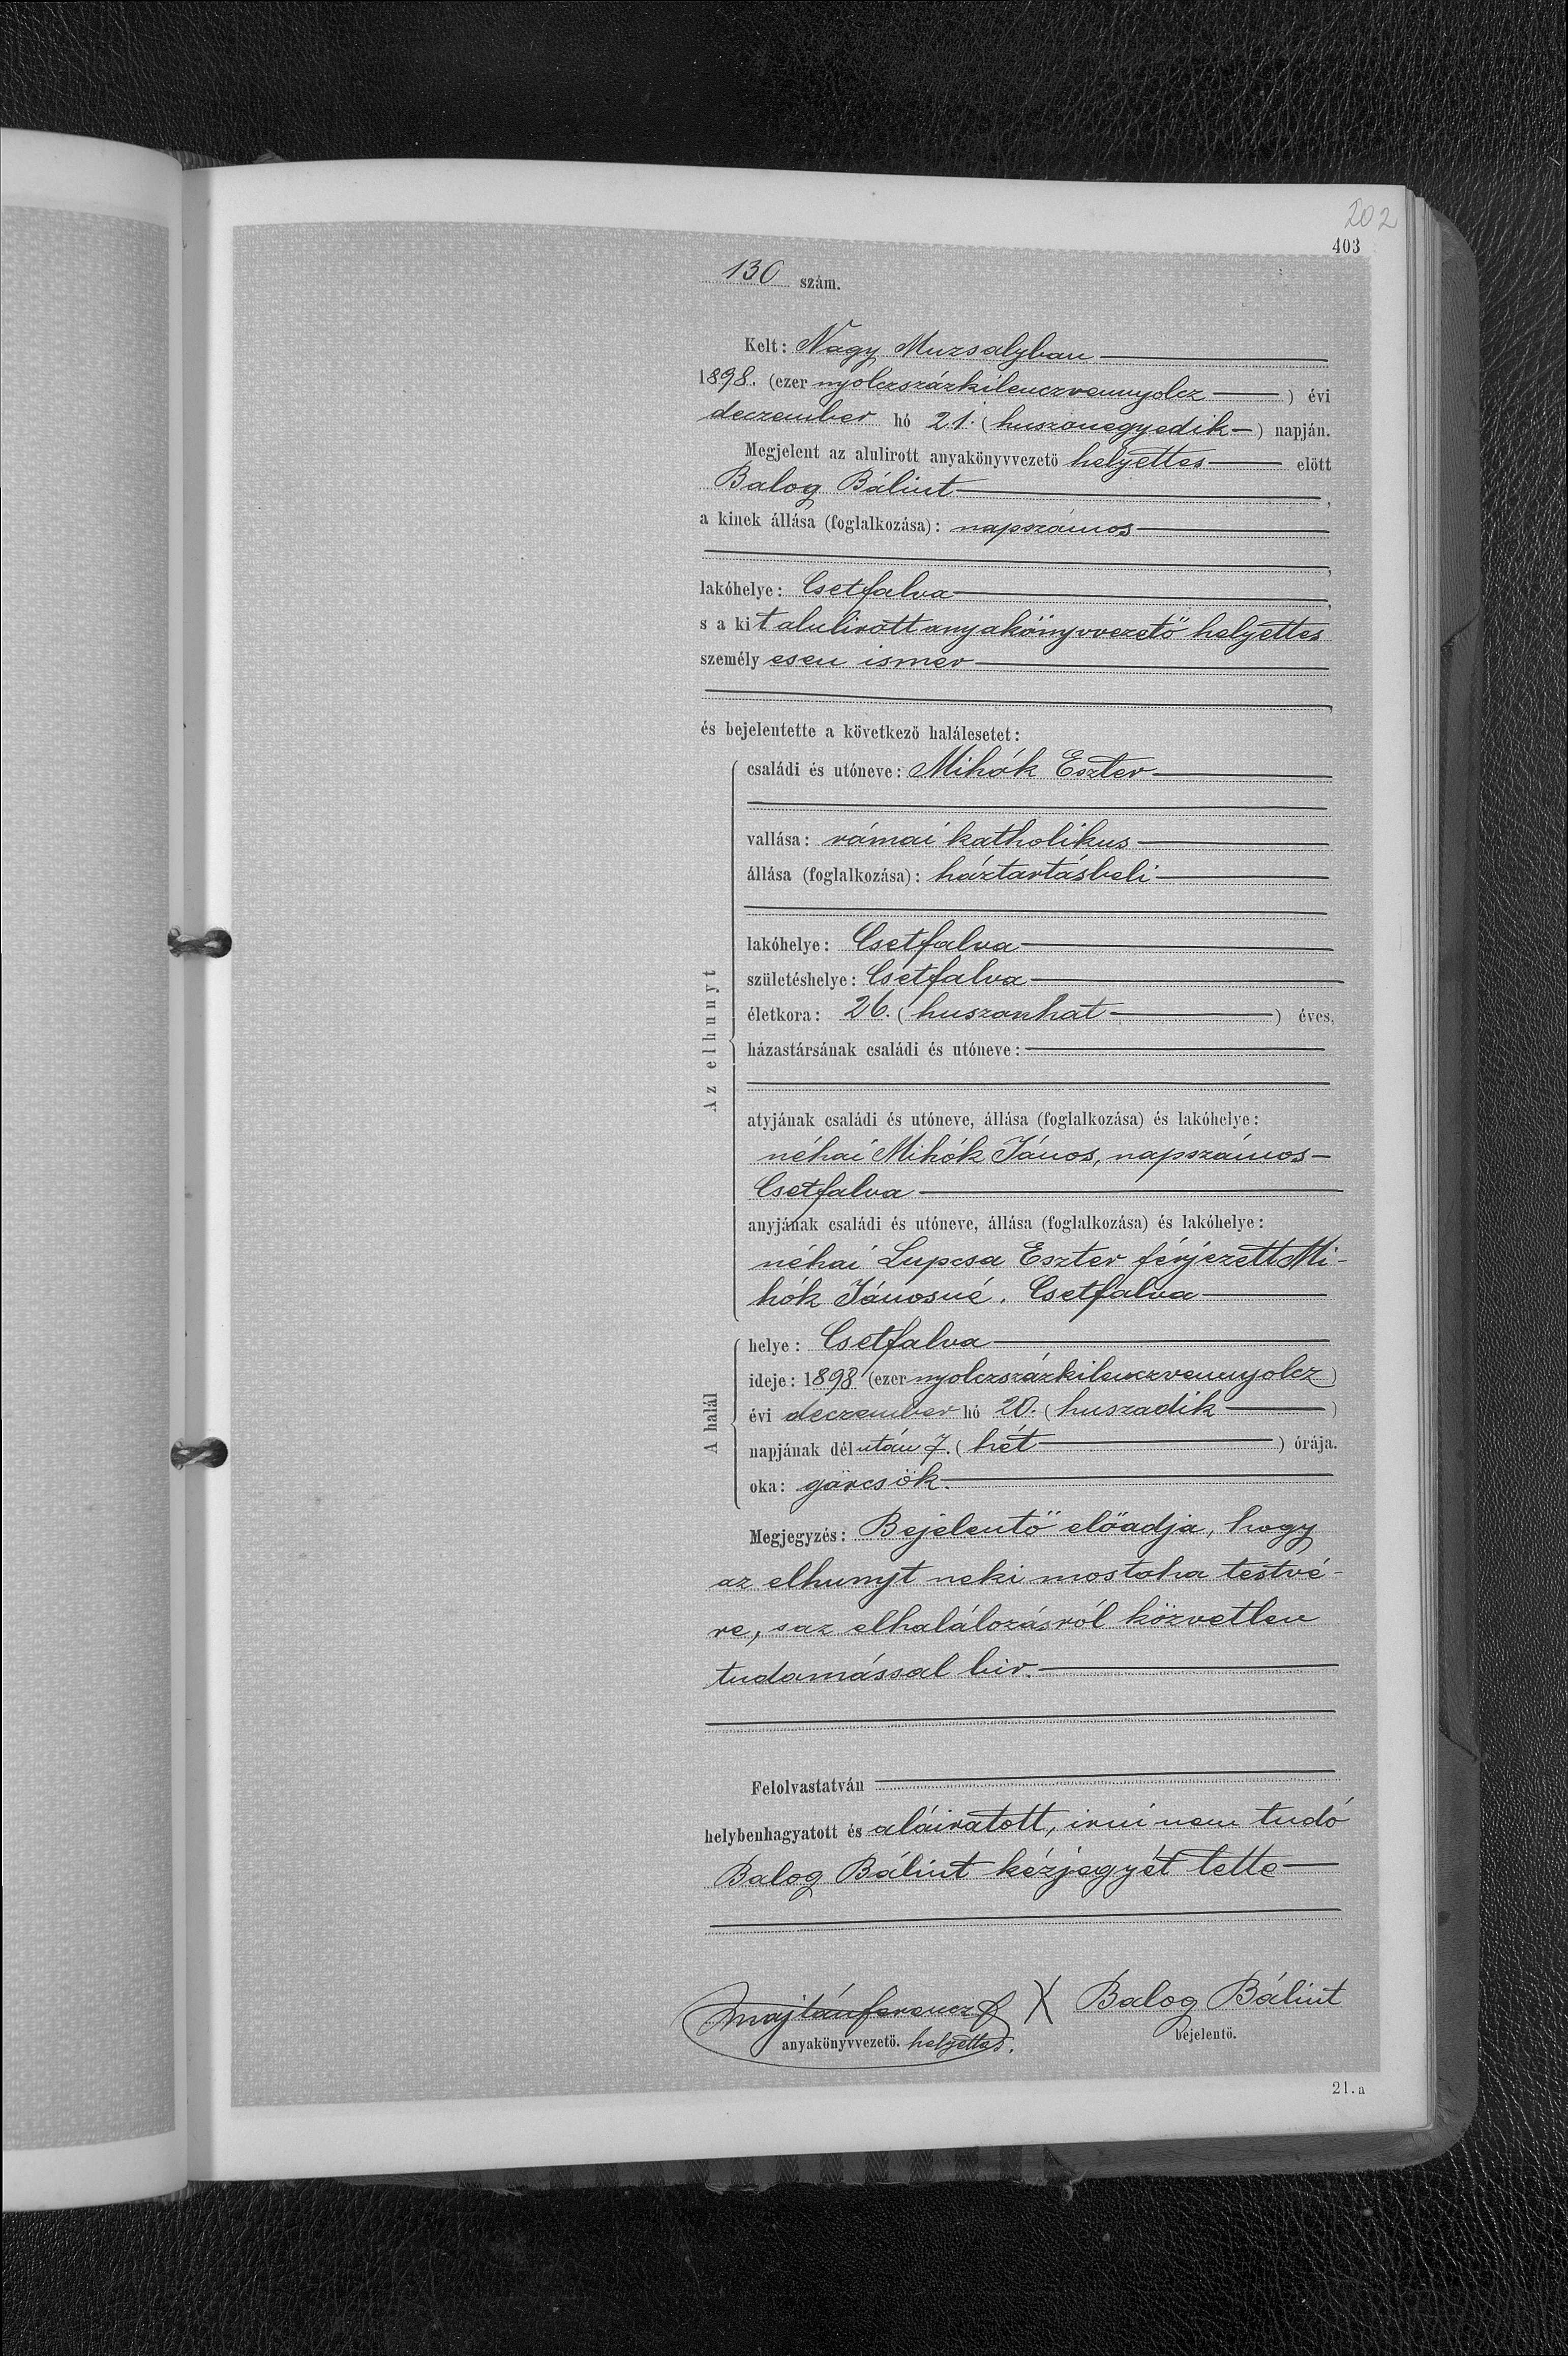 202
403
130 szám.
Kelt: Nagy Muzsalyban
1898. (ezer nyolczszázkilenczvennyolcz) évi
deczember hó 21. (huszonegyedik) napján.
Megjelent az alulirott anyakönyvvezető helyettes előtt
Balog Bálint,
a kinek állása (foglalkozása): napszámos
,
lakóhelye: Csetfalva,
s a kit alulirott anyakönyvvezető helyettes
személyesen ismer
,
és bejelentette a következő halálesetet:
Az elhunyt
családi és utóneve: Mihók Eszter
vallása: római katholikus
állása (foglalkozása): háztartásbeli
lakóhelye: Csetfalva
születéshelye: Csetfalva
életkora: 26. (huszonhat) éves,
házastársának családi és utóneve:
atyjának családi és utóneve, állása (foglalkozása) és lakóhelye:
néhai Mihók János, napszámos
Csetfalva
anyjának családi és utóneve, állása (foglalkozása) és lakóhelye:
néhai Lupcsa Eszter férjezett Mi-
hók Jánosné. Csetfalva
A halál
helye: Csetfalva
ideje: 1898 (ezer nyolczszázkilenczvennyolcz)
évi deczember hó 20. (huszadik)
napjának délután 7. (hét) órája.
oka: görcsök.
Megjegyzés: Bejelentő előadja, hogy
az elhunyt neki mostoha testvé-
re, s az elhalálozásról közvetlen
tudomással bir.
Felolvastatván
helybenhagyatott és aláiratott, irni nem tudó
Balog Bálint kézjegyét tette
Majtán Ferencz X Balog Bálint
anyakönyvvezető. helyettes. bejelentő.
21.a